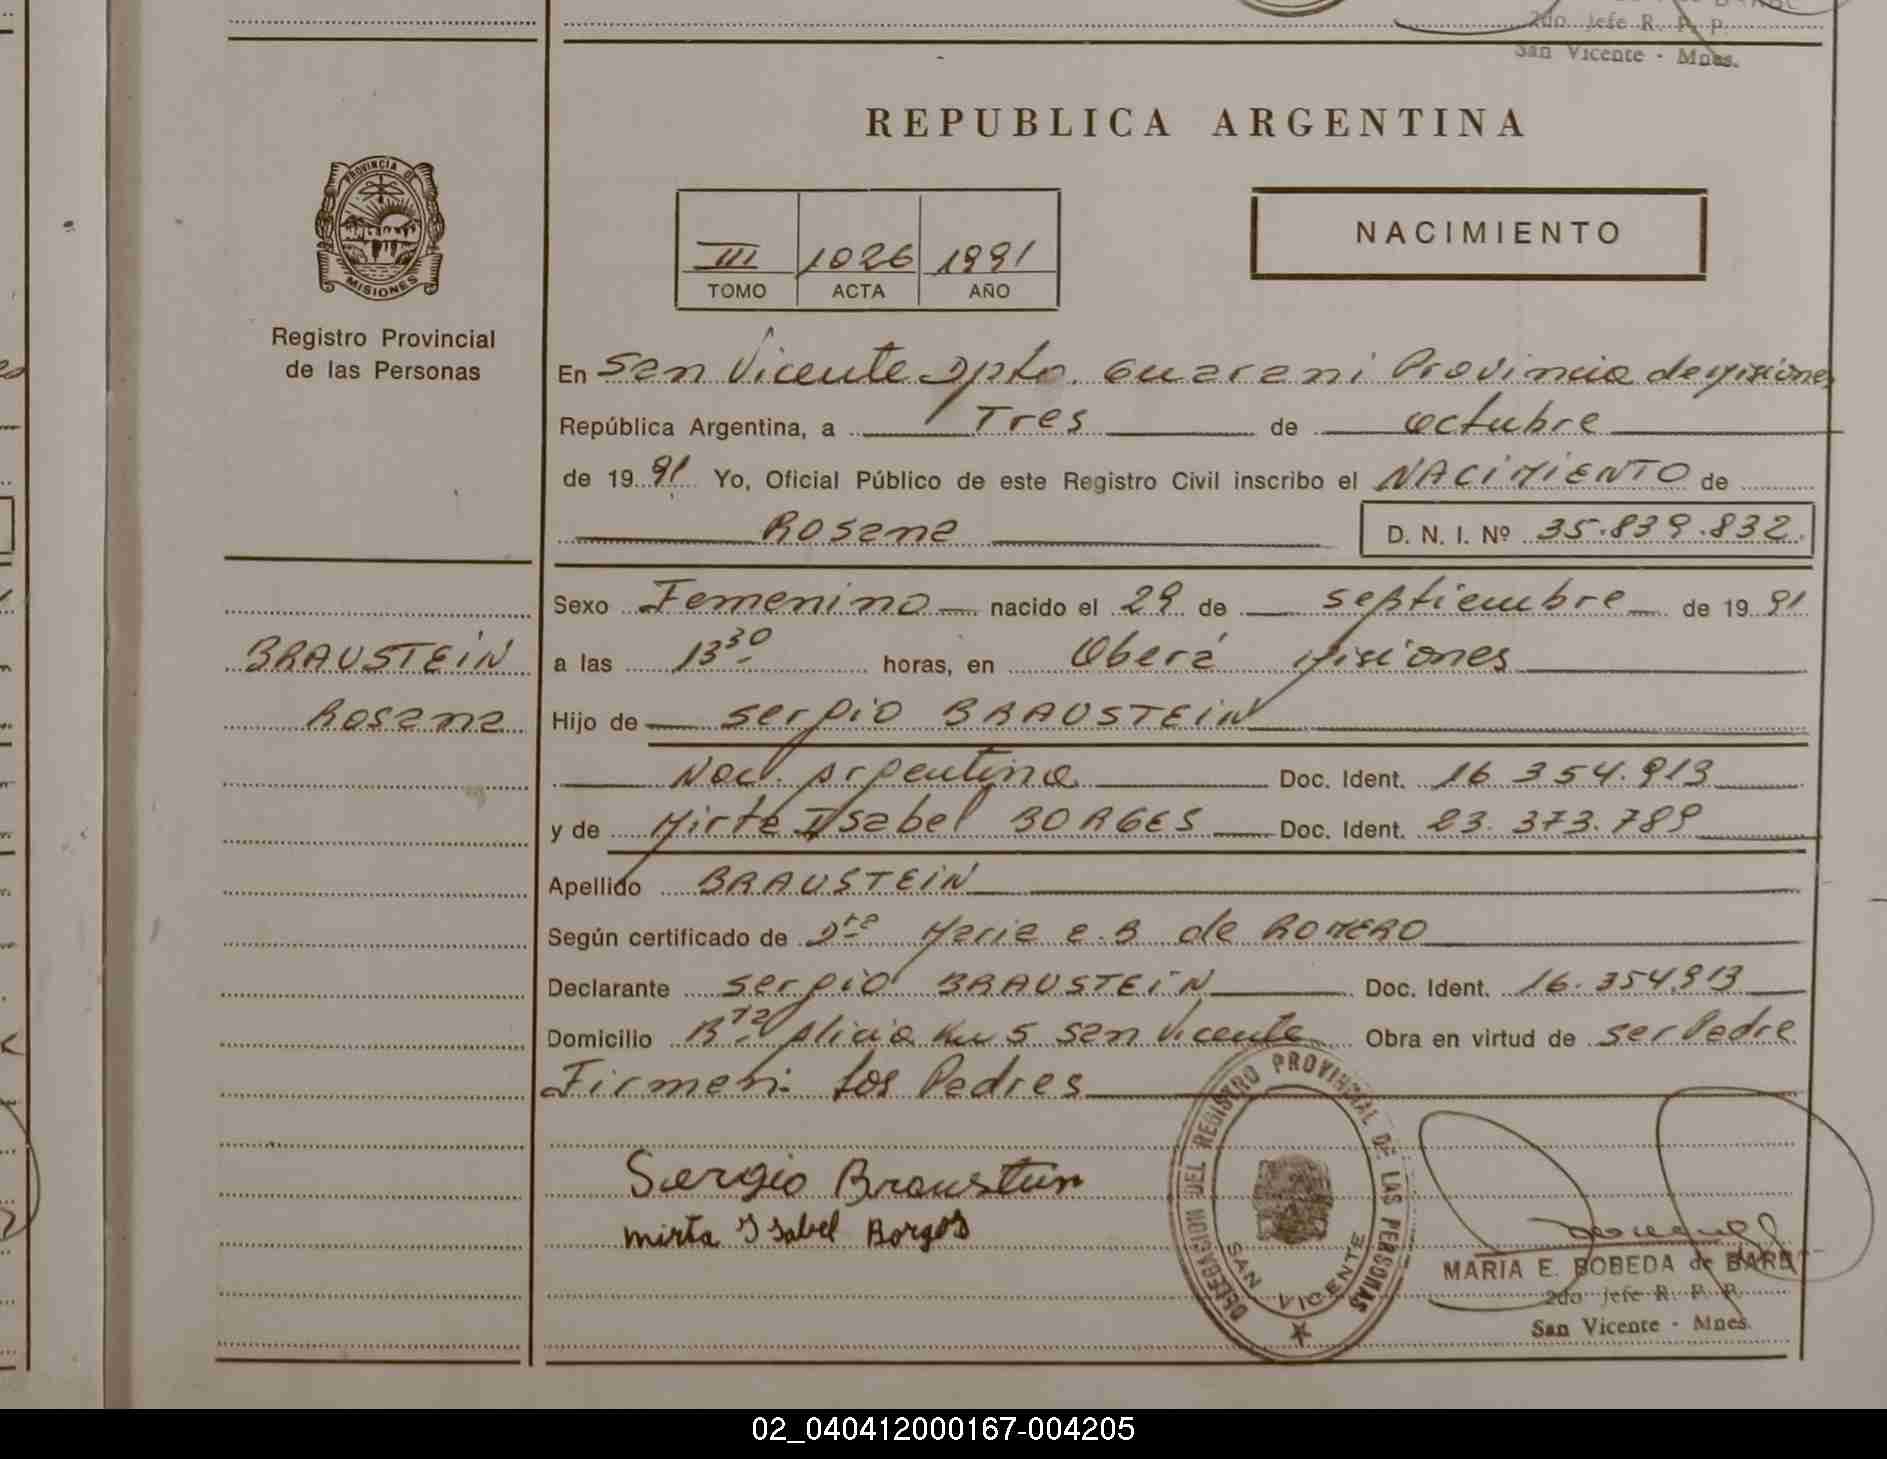 2do Jefe R. P. P.
San Vicente - Mnes.
REPUBLICA ARGENTINA
PROVINCIA DE
MISIONES
Registro Provincial
de las Personas
III 1026 1991
TOMO ACTA AÑO
NACIMIENTO
En San Vicente Dpto. Guarani Provincia de Misiones
República Argentina, a Tres de octubre
de 1991 Yo, Oficial Público de este Registro Civil inscribo el NACIMIENTO de
Rosana D. N. I. Nº 35.839.832
Sexo Femenino nacido el 29 de septiembre de 1991
BRAUSTEIN
Rosana
a las 13 30 horas, en Oberá Misiones
Hijo de Sergio BRAUSTEIN
Nac. Argentina Doc. Ident. 16.354.913
y de Mirta Isabel BORGES Doc. Ident. 23.373.789
Apellido BRAUSTEIN
Según certificado de Dra Maria E. B de ROMERO
Declarante Sergio BRAUSTEIN Doc. Ident. 16.354.913
Domicilio Bta Alicia Km 5 San Vicente Obra en virtud de ser Padre
Firman: Los Padres
Sergio Braustein
Mirta Ysabel Borges
DELEGACION DEL REGISTRO PROVINCIAL DE LAS PERSONAS
SAN VICENTE
MARIA E. BOBEDA de
2do Jefe R. P. P.
San Vicente - Mnes.
02_040412000167-004205